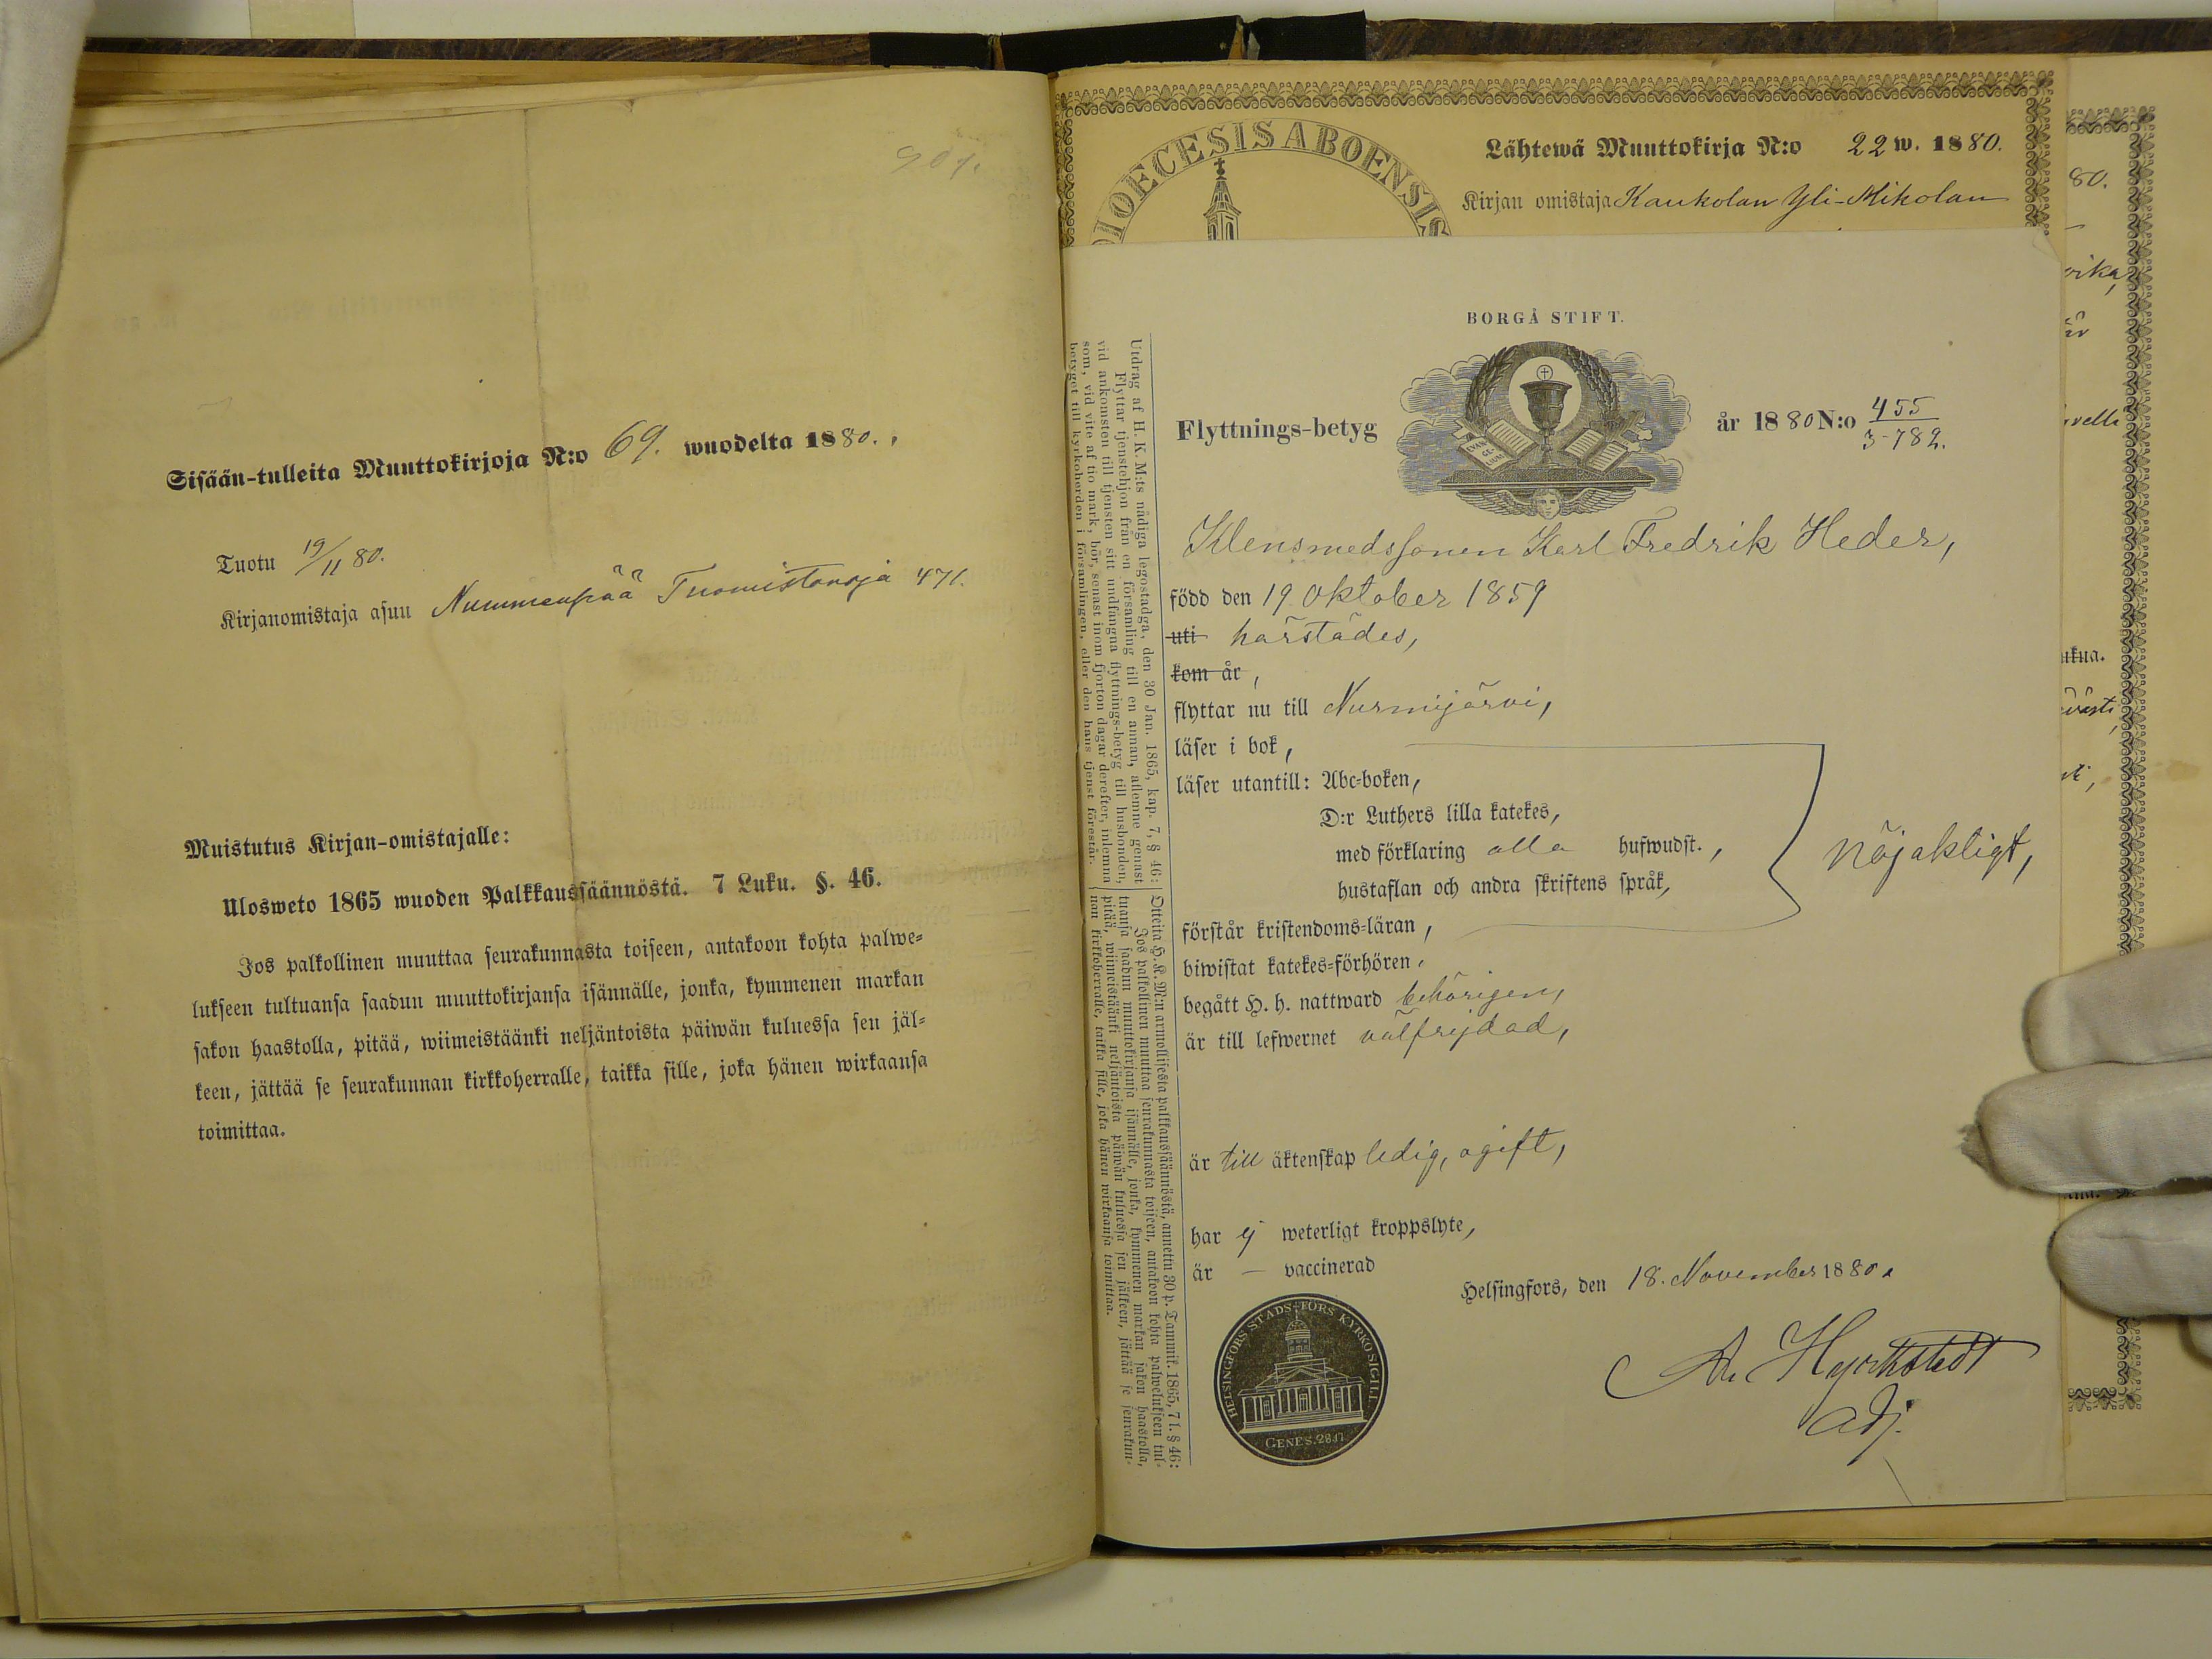 907.
Sisään-tulleita Muuttokirjoja N:o 69. wuodelta 1880.
Tuotu 19/11 80.
Kirjanomistaja asuu Nummenpää Tuomistonoja 471.
Muistutus Kirjan-omistajalle:
Ulosweto 1865 wuoden Palkkaussäännöstä. 7 Luku. §. 46.
Jos palkollinen muuttaa seurakunnasta toiseen, antakoon kohta palwe-
lukseen tultuansa saadun muuttokirjansa isännälle, jonka, kymmenen markan
sakon haastolla, pitää, wiimeistäänki neljäntoista päiwän kuluessa sen jäl-
keen, jättää se seurakunnan kirkkoherralle, taikka sille, joka hänen wirkaansa
toimittaa.
DIOECESIS ABOENSIS
Lähtewä Muuttokirja N:o 22 w. 1880.
Kirjan omistaja Kaukolan Yli-Mikolan
BORGÅ STIFT.
Flyttnings-betyg år 1880 N:o 455
3-782.
Klensmedssonen Karl Fredrik Heder,
född den 19 oktober 1859
uti härstädes,
kom år,
flyttar nu till Nurmijärvi,
läser i bok,
läser utantill: Abc-boken,
D:r Luthers lilla katekes,
med förklaring alla hufwudst.,
hustaflan och andra skriftens språk,
nöjaktigt,
förstår kristendoms-läran,
biwistat katekes-förhören,
begått H. h. nattward behörigen,
är till lefwernet välfrejdad,
är till äktenskap ledig, ogift,
har ej weterligt kroppslyte,
är — vaccinerad
Helsingfors, den 18. November 1880.
Adj.
HELSINGFORS STADS-FÖRS KYRKO SIGILL
GENES. 28.17
Utdrag af H. K. M:ts nådiga legostadga, den 30 Jan. 1865, kap. 7, § 46:
Flyttar tjenstehjon från en församling till en annan, aflemne genast
vid ankomsten till tjensten sitt undfångna flyttnings-betyg till husbonden,
som, vid vite af tio mark, bör, senast inom fjorton dagar derefter, inlemna
betyget till kyrkoherden i församlingen, eller den hans tjenst förestår.
Otteita H. K. M:n armollisesta palkkaussäännöstä, annettu 30 p. Tammik. 1865, 7 l. § 46:
Jos palkollinen muuttaa seurakunnasta toiseen, antakoon kohta palwelukseen tul-
tuansa saadun muuttokirjansa isännälle, jonka, kymmenen markan sakon haastolla,
pitää, wiimeistäänki neljäntoista päiwän kuluessa sen jälkeen, jättää se seurakun-
nan kirkkoherralle, taikka sille, joka hänen wirkaansa toimittaa.
80.